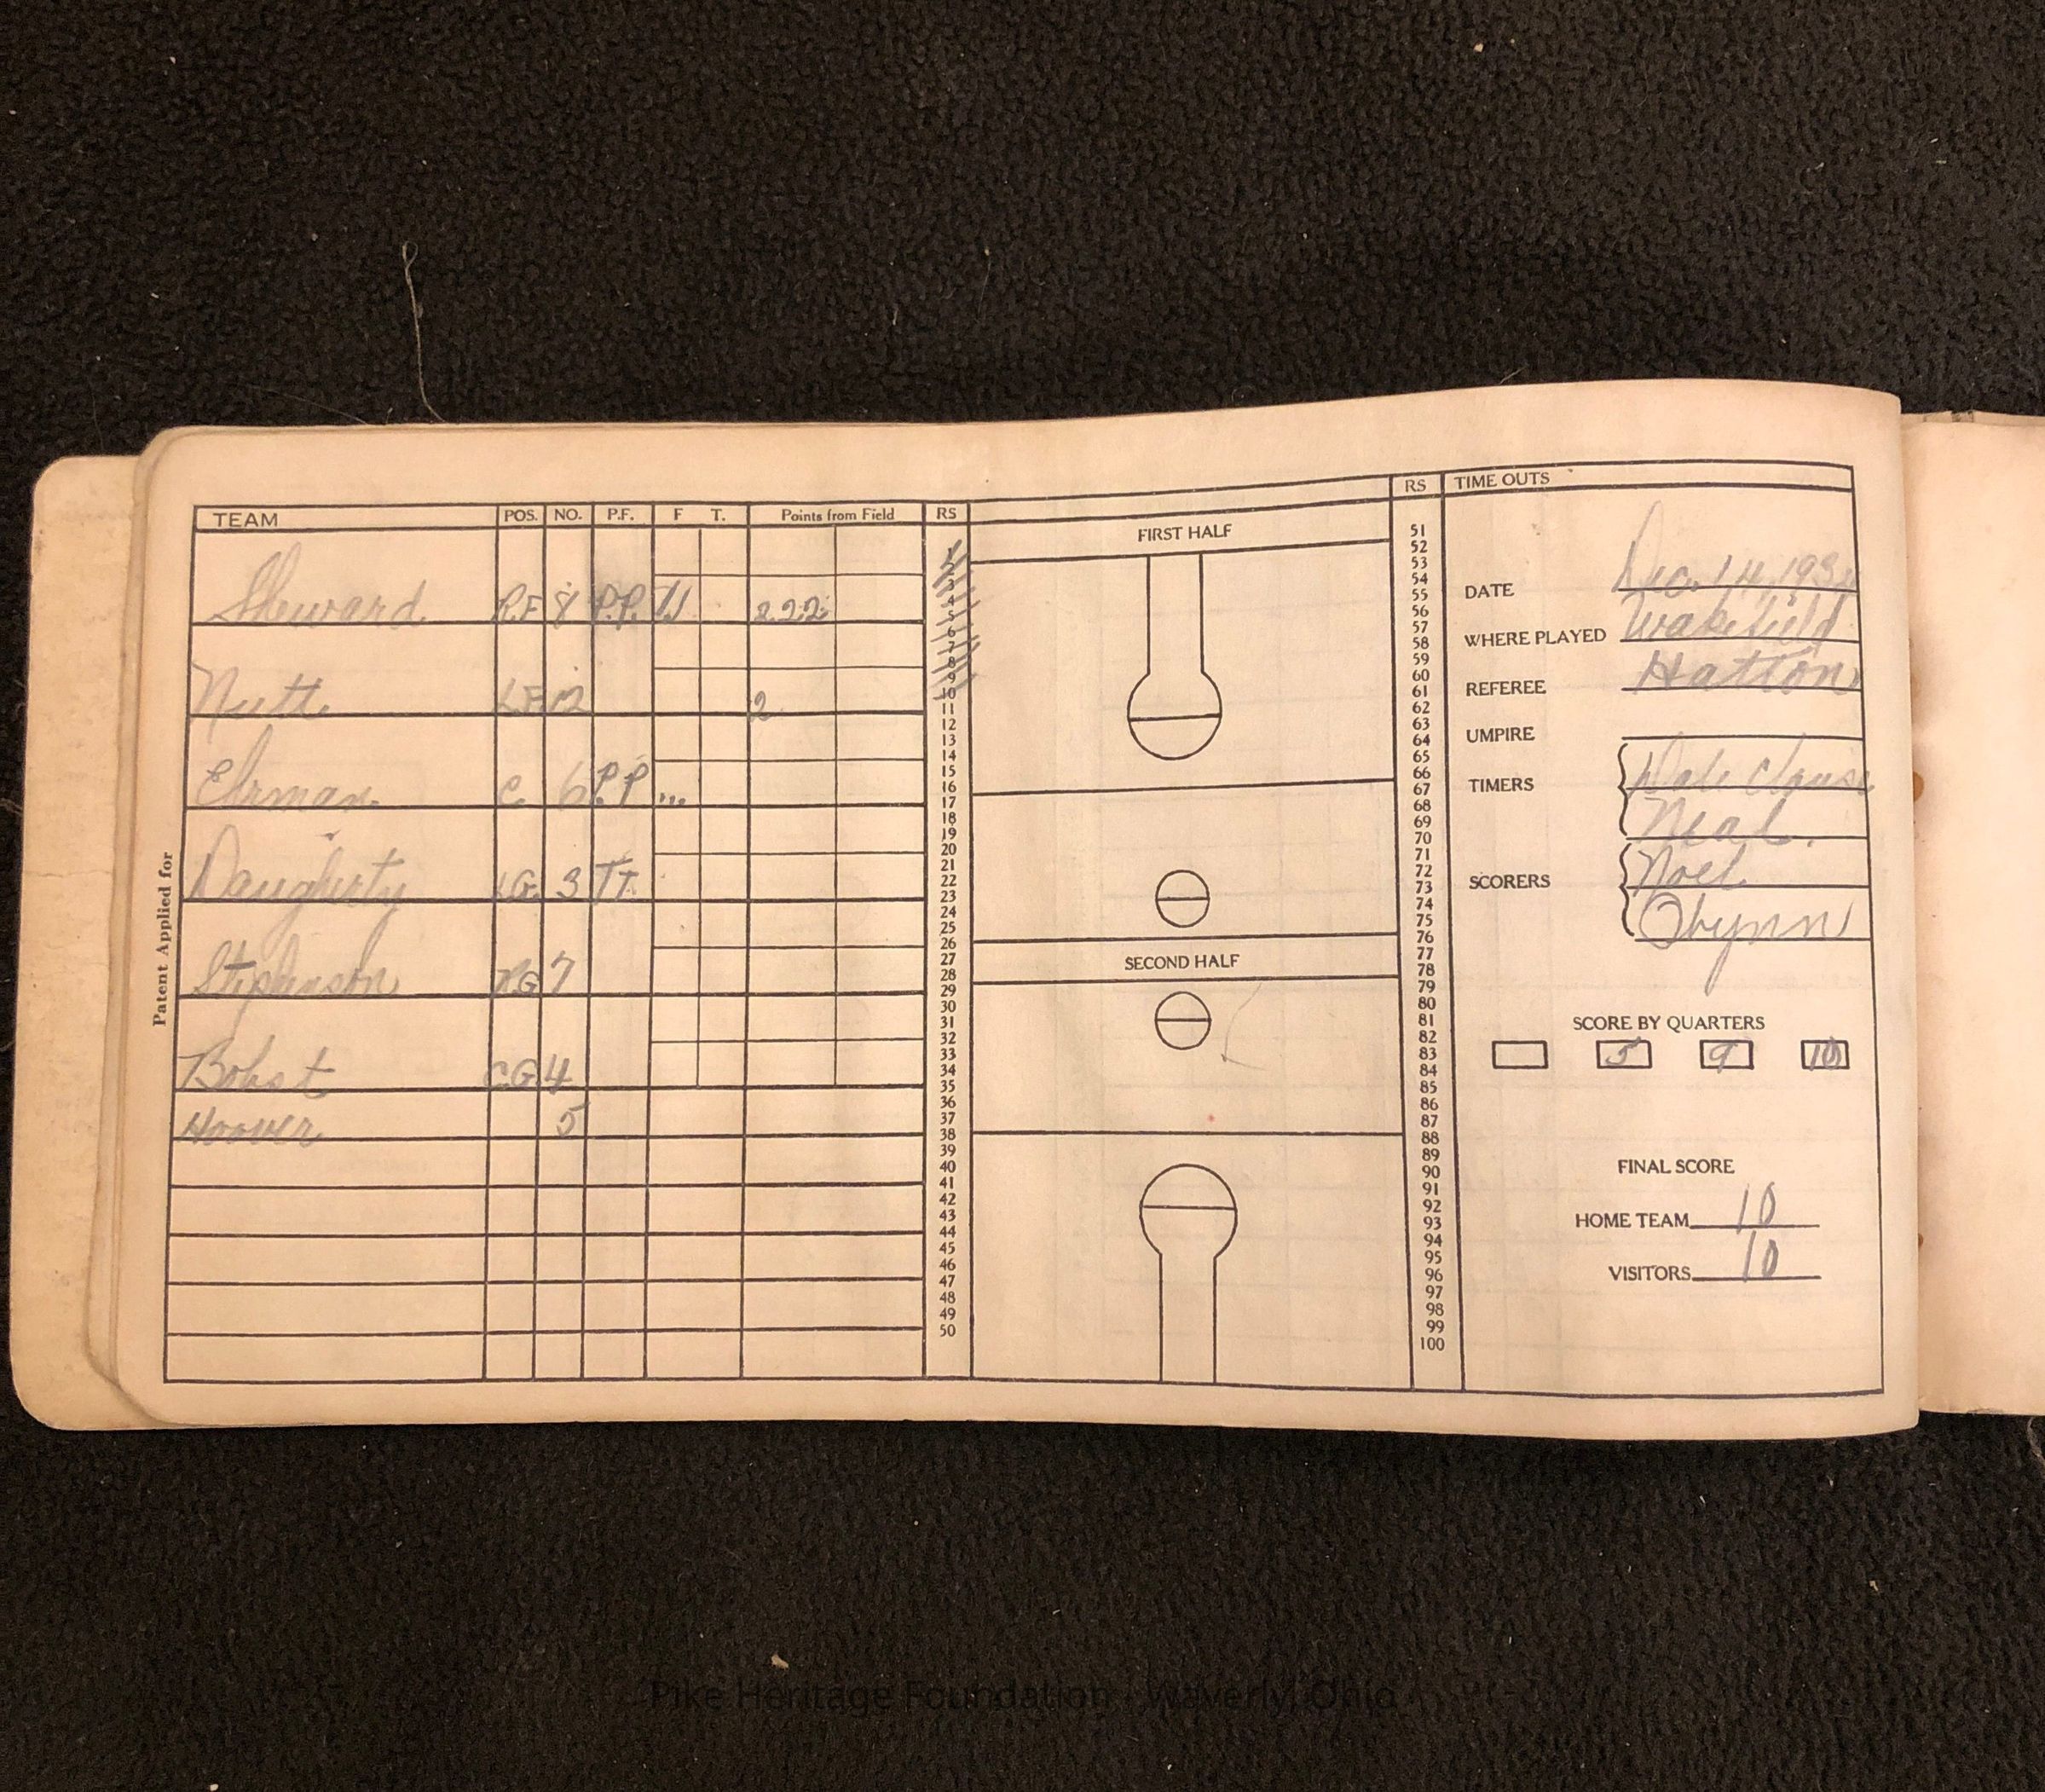 TEAM POS. NO. P.F. F T. Points from Field RS
Sheward R.F 8 P.P. 222
Nutt LF 12 2
Ehrman C. 6 P.P ...
Daugherty LG. 3 TT
Stephenson RG 7
Bobst CG 4
Hoover 5
Patent Applied for
1
2
3
4
5
6
7
8
9
10
11
12
13
14
15
16
17
18
19
20
21
22
23
24
25
26
27
28
29
30
31
32
33
34
35
36
37
38
39
40
41
42
43
44
45
46
47
48
49
50
FIRST HALF
SECOND HALF
RS
51
52
53
54
55
56
57
58
59
60
61
62
63
64
65
66
67
68
69
70
71
72
73
74
75
76
77
78
79
80
81
82
83
84
85
86
87
88
89
90
91
92
93
94
95
96
97
98
99
100
TIME OUTS
DATE Dec. 14, 1934
WHERE PLAYED Wakefield
REFEREE Hatton
UMPIRE
TIMERS Dale
Neal.
SCORERS Noel
SCORE BY QUARTERS
5 9 10
FINAL SCORE
HOME TEAM 10
VISITORS 10
Pike Heritage Foundation - Waverly, Ohio